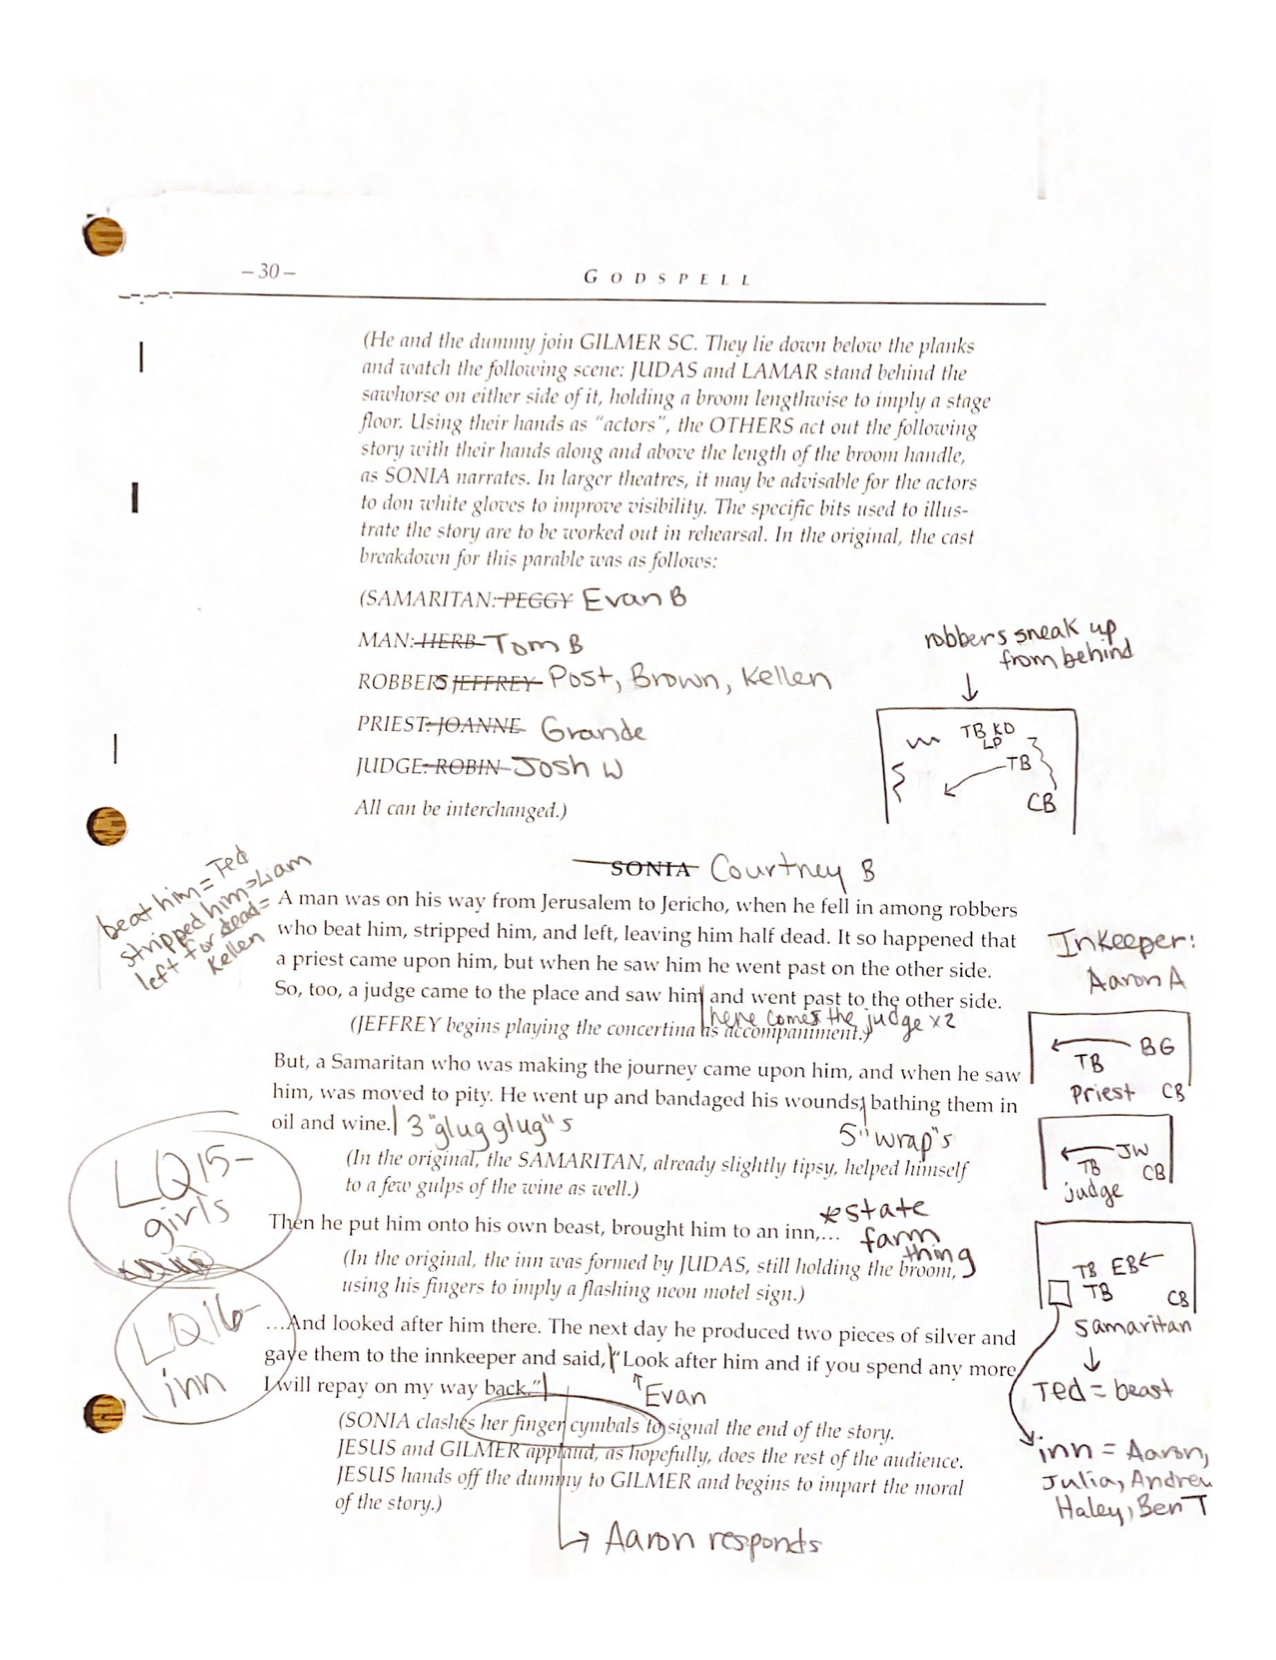 – 30 –
GODSPELL
(He and the dummy join GILMER SC. They lie down below the planks
and watch the following scene: JUDAS and LAMAR stand behind the
sawhorse on either side of it, holding a broom lengthwise to imply a stage
floor. Using their hands as “actors”, the OTHERS act out the following
story with their hands along and above the length of the broom handle,
as SONIA narrates. In larger theatres, it may be advisable for the actors
to don white gloves to improve visibility. The specific bits used to illus-
trate the story are to be worked out in rehearsal. In the original, the cast
breakdown for this parable was as follows:
(SAMARITAN: PEGGY Evan B
MAN: HERB Tom B
ROBBERS JEFFREY Post, Brown, Kellen
PRIEST: JOANNE Grande
JUDGE: ROBIN Josh W
All can be interchanged.)
robbers sneak up
from behind
TB KD
LP
TB
CB
SONIA Courtney B
beat him = Ted
stripped him = Liam
left for dead =
Kellen
A man was on his way from Jerusalem to Jericho, when he fell in among robbers
who beat him, stripped him, and left, leaving him half dead. It so happened that
a priest came upon him, but when he saw him he went past on the other side.
So, too, a judge came to the place and saw him and went past to the other side.
here comes the judge x2
(JEFFREY begins playing the concertina as accompaniment.)
Inkeeper:
Aaron A
BG
TB
Priest CB
But, a Samaritan who was making the journey came upon him, and when he saw
him, was moved to pity. He went up and bandaged his wounds, bathing them in
oil and wine. 3 "glug glug"s
5 "wrap"s
JW
TB CB
judge
(In the original, the SAMARITAN, already slightly tipsy, helped himself
to a few gulps of the wine as well.)
LQ15-
girls
Then he put him onto his own beast, brought him to an inn,...
*state
farm
thing
(In the original, the inn was formed by JUDAS, still holding the broom,
using his fingers to imply a flashing neon motel sign.)
TB EB
TB
CB
Samaritan
Ted = beast
inn = Aaron,
Julia, Andrew
Haley, Ben T
LQ16-
inn
...And looked after him there. The next day he produced two pieces of silver and
gave them to the innkeeper and said, “Look after him and if you spend any more
I will repay on my way back.”
Evan
(SONIA clashes her finger cymbals to signal the end of the story.
JESUS and GILMER applaud, as hopefully, does the rest of the audience.
JESUS hands off the dummy to GILMER and begins to impart the moral
of the story.)
Aaron responds